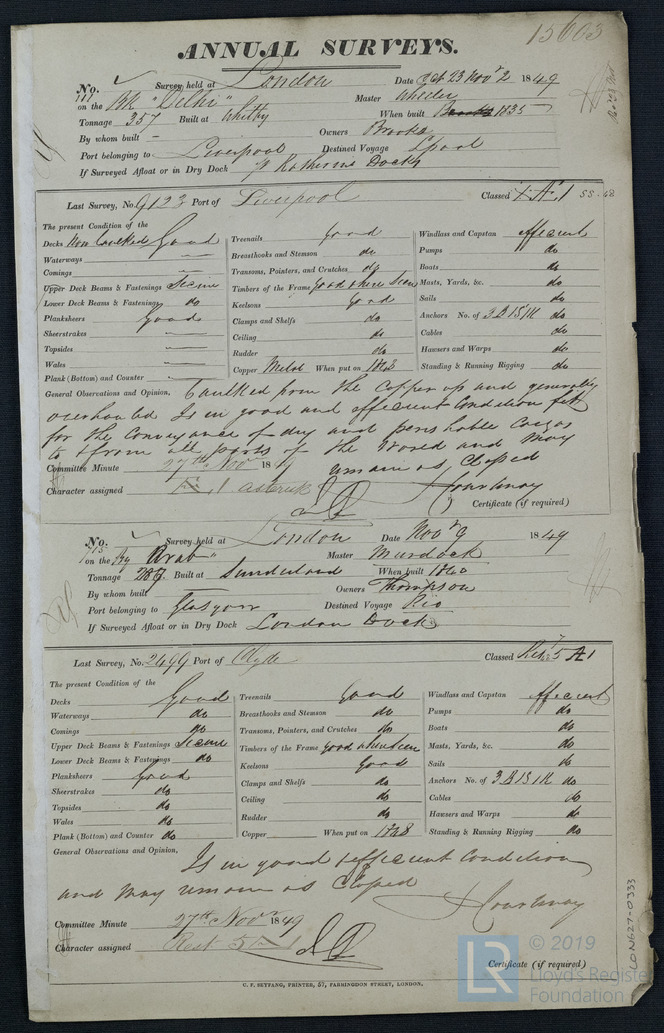 15603
ANNUAL SURVEYS.
No. 711 Survey held at London Date Oct 23 Novr 2 1849
on the Bk "Delhi" Master Wheeler
Tonnage 357 Built at Whitby When built 1835
By whom built – Owners Brooks
Port belonging to Liverpool Destined Voyage Lpool
If Surveyed Afloat or in Dry Dock St Katherine Docks
Last Survey, No. 9123 Port of Liverpool Classed Æ 1 SS. 48
The present Condition of the
Decks Now Caulked Good
Waterways
Comings
Upper Deck Beams & Fastenings Secure
Lower Deck Beams & Fastenings do
Planksheers Good
Sheerstrakes
Topsides
Wales
Plank (Bottom) and Counter
Treenails Good
Breasthooks and Stemson do
Transoms, Pointers, and Crutches do
Timbers of the Frame Good where Seen
Keelsons Good
Clamps and Shelfs do
Ceiling do
Rudder do
Copper Metal When put on
Windlass and Capstan efficient
Pumps do
Boats do
Masts, Yards, &c. do
Sails do
Anchors No. of 3 B 1 S 1 K do
Cables do
Hawsers and Warps do
Standing & Running Rigging do
General Observations and Opinion, Caulked from the Copper up and generally
overhauled Is in good and efficient Condition fit
for the Conveyance of dry and perishable Cargos
to & from all parts of the World and May
Committee Minute 27th Novr 1849 remain as Classed
Character assigned Æ 1 asterisk Courtenay
Certificate (if required)
No. 715 Survey held at London Date Novr 9 1849
on the Bg Arab" Master Murdock
Tonnage 286 Built at Sunderland When built 1840
By whom built Owners Thompson
Port belonging to Glasgow Destined Voyage Rio
If Surveyed Afloat or in Dry Dock London Docks
Last Survey, No. 2499 Port of Clyde Classed Rest 5 A1
The present Condition of the
Decks Good
Waterways do
Comings do
Upper Deck Beams & Fastenings Secure
Lower Deck Beams & Fastenings do
Planksheers Good
Sheerstrakes do
Topsides do
Wales do
Plank (Bottom) and Counter do
Treenails Good
Breasthooks and Stemson do
Transoms, Pointers, and Crutches do
Timbers of the Frame Good where Seen
Keelsons Good
Clamps and Shelfs do
Ceiling do
Rudder do
Copper When put on 1848
Windlass and Capstan efficient
Pumps do
Boats do
Masts, Yards, &c. do
Sails do
Anchors No. of 3 B 1 S 1 K do
Cables do
Hawsers and Warps do
Standing & Running Rigging do
General Observations and Opinion,
Is in good & efficient Condition
and may remain as Classed
Courtenay
Committee Minute 27th Novr 1849
Character assigned Rest 5
Certificate (if required)
C. F. SEYFANG, PRINTER, 57, FARRINGDON STREET, LONDON.
LON627-0333
LR © 2019
Lloyd's Register
Foundation